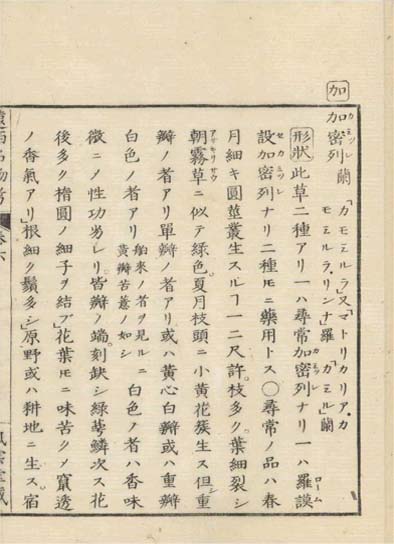 加
加密列 蘭「カモミルラ」又「マトリカリア、カ
モミルラ、リンナ」羅「カミル」蘭
形状此草二種アリ一ハ尋常加密列ナリ一ハ羅謨
設加密列ナリ二種モニ藥用トス〇尋常ノ品ハ春
月細キ圓莖叢生スルヿ一二尺許枝多ク葉細裂シ
朝霧草ニ似テ緑色夏月枝頭ニ小黄花簇生ス但シ重
瓣ノ者アリ單瓣ノ者アリ或ハ黄心白瓣或ハ重瓣
白色ノ者アリ 舶來ノ者ヲ見ルニ黄瓣苦薏ノ如シ 白色ノ者ハ香味
微ニノ性功劣レリ皆瓣ノ端刻缺シ緑萼鱗次ス花
後多ク楕圓ノ細子ヲ結ブ」花葉モニ味苦クメ竄透
ノ香氣アリ」根細ク鬚多シ」原野或ハ耕地ニ生ス宿
名物考 卷六